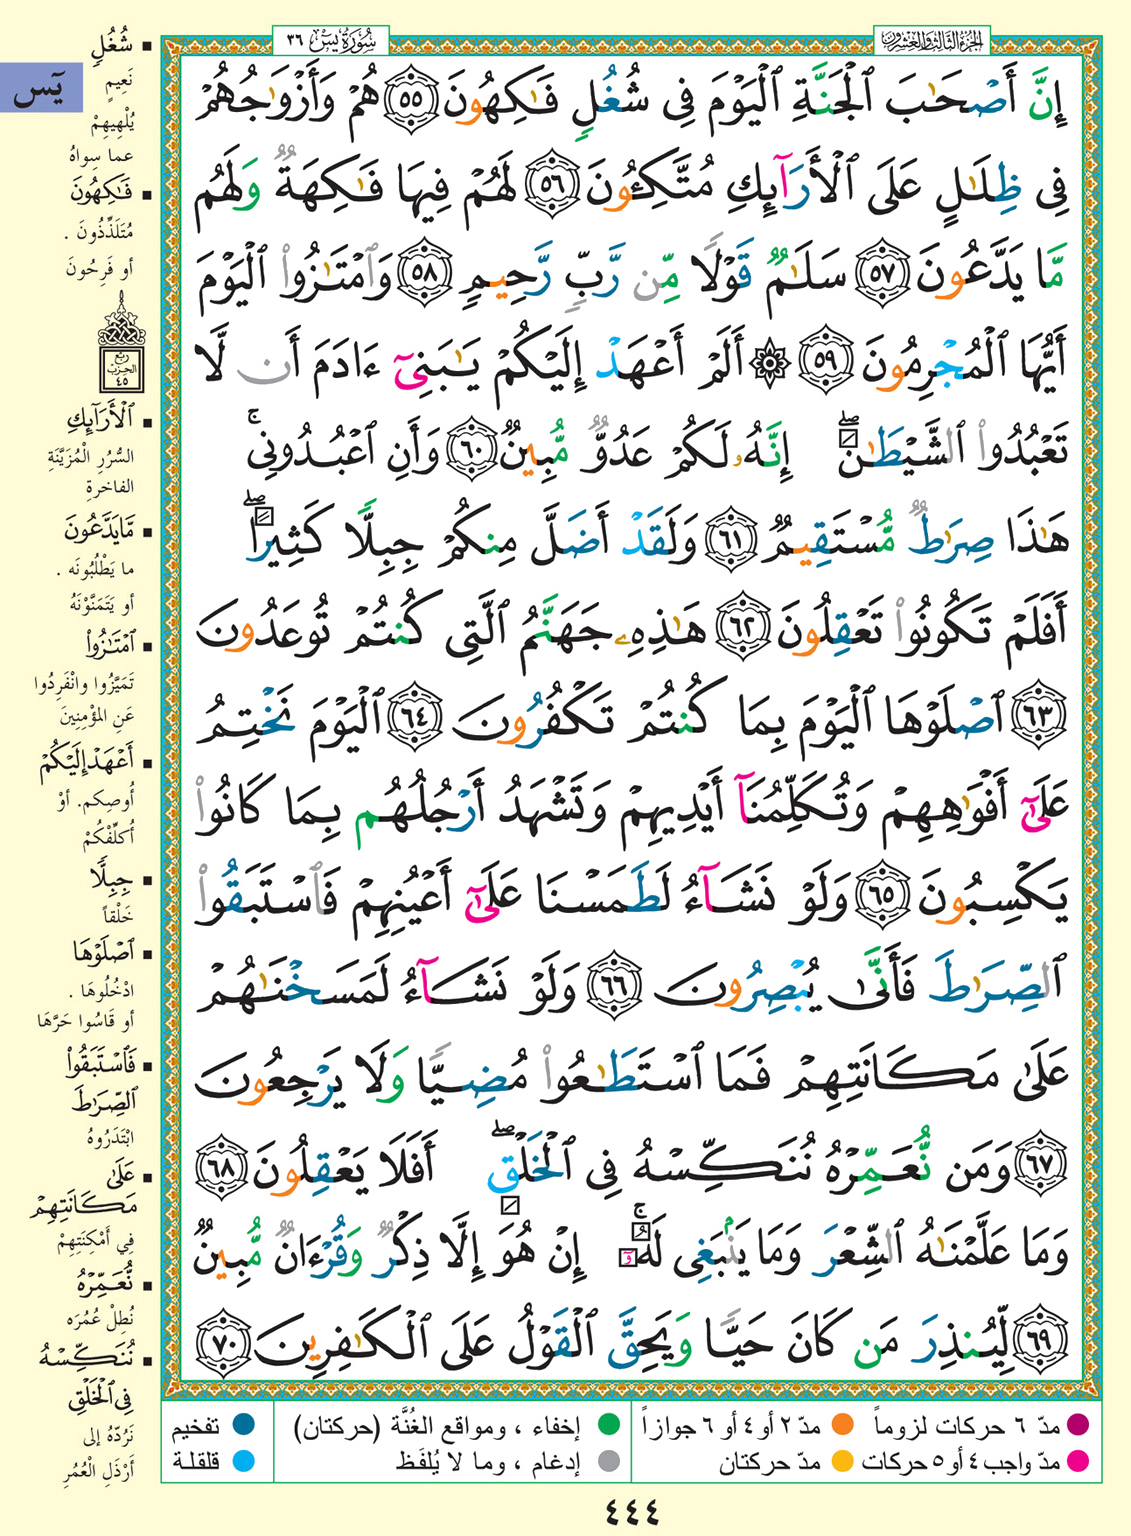 الجزء الثالث والعشرون
سُورَةُ يسٓ ٣٦
إِنَّ أَصۡحَٰبَ ٱلۡجَنَّةِ ٱلۡيَوۡمَ فِى شُغُلٍ فَٰكِهُونَ ٥٥ هُمۡ وَأَزۡوَٰجُهُمۡ
فِى ظِلَٰلٍ عَلَى ٱلۡأَرَآئِكِ مُتَّكِـُٔونَ ٥٦ لَهُمۡ فِيهَا فَٰكِهَةٌ وَلَهُم
مَّا يَدَّعُونَ ٥٧ سَلَٰمٌ قَوۡلًا مِّن رَّبٍّ رَّحِيمٍ ٥٨ وَٱمۡتَٰزُواْ ٱلۡيَوۡمَ
أَيُّهَا ٱلۡمُجۡرِمُونَ ٥٩ ۞ أَلَمۡ أَعۡهَدۡ إِلَيۡكُمۡ يَٰبَنِىٓ ءَادَمَ أَن لَّا
تَعۡبُدُواْ ٱلشَّيۡطَٰنَۖ إِنَّهُۥ لَكُمۡ عَدُوٌّ مُّبِينٌ ٦٠ وَأَنِ ٱعۡبُدُونِىۚ
هَٰذَا صِرَٰطٌ مُّسۡتَقِيمٌ ٦١ وَلَقَدۡ أَضَلَّ مِنكُمۡ جِبِلًّا كَثِيرًاۖ
أَفَلَمۡ تَكُونُواْ تَعۡقِلُونَ ٦٢ هَٰذِهِۦ جَهَنَّمُ ٱلَّتِى كُنتُمۡ تُوعَدُونَ
٦٣ ٱصۡلَوۡهَا ٱلۡيَوۡمَ بِمَا كُنتُمۡ تَكۡفُرُونَ ٦٤ ٱلۡيَوۡمَ نَخۡتِمُ
عَلَىٰٓ أَفۡوَٰهِهِمۡ وَتُكَلِّمُنَآ أَيۡدِيهِمۡ وَتَشۡهَدُ أَرۡجُلُهُم بِمَا كَانُواْ
يَكۡسِبُونَ ٦٥ وَلَوۡ نَشَآءُ لَطَمَسۡنَا عَلَىٰٓ أَعۡيُنِهِمۡ فَٱسۡتَبَقُواْ
ٱلصِّرَٰطَ فَأَنَّىٰ يُبۡصِرُونَ ٦٦ وَلَوۡ نَشَآءُ لَمَسَخۡنَٰهُمۡ
عَلَىٰ مَكَانَتِهِمۡ فَمَا ٱسۡتَطَٰعُواْ مُضِيًّا وَلَا يَرۡجِعُونَ
٦٧ وَمَن نُّعَمِّرۡهُ نُنَكِّسۡهُ فِى ٱلۡخَلۡقِۖ أَفَلَا يَعۡقِلُونَ ٦٨
وَمَا عَلَّمۡنَٰهُ ٱلشِّعۡرَ وَمَا يَنۢبَغِى لَهُۥٓۚ إِنۡ هُوَ إِلَّا ذِكۡرٌ وَقُرۡءَانٌ مُّبِينٌ
٦٩ لِّيُنذِرَ مَن كَانَ حَيًّا وَيَحِقَّ ٱلۡقَوۡلُ عَلَى ٱلۡكَٰفِرِينَ ٧٠
يٓسٓ
شُغُلٍ
نَعِيمٍ
يُلْهِيهِمْ
عما سِواهُ
فَٰكِهُونَ
مُتَلَذِّذُونَ .
أو فَرِحُونَ
ربع
الحزب
٤٥
ٱلۡأَرَآئِكِ
السُّرُرِ الْمُزَيَّنَةِ
الفاخرةِ
مَّايَدَّعُونَ
ما يَطْلُبُونَه .
أو يَتَمَنَّوْنَهُ
ٱمۡتَٰزُواْ
تَمَيَّزُوا وانْفَرِدُوا
عَنِ المؤْمِنِينَ
أَعۡهَدۡ إِلَيۡكُمۡ
أُوصِكم. أوْ
أُكلِّفْكُمْ
جِبِلًّا
خَلْقاً
ٱصۡلَوۡهَا
ادْخُلُوهَا .
أو قَاسُوا حَرَّهَا
فَٱسۡتَبَقُواْ
ٱلصِّرَٰطَ
ابْتَدَرُوهُ
عَلَىٰ
مَكَانَتِهِمۡ
فِي أَمْكِنَتِهِمْ
نُّعَمِّرۡهُ
نُطِلْ عُمُرَه
نُنَكِّسۡهُ
فِى ٱلۡخَلۡقِ
نَرُدّهُ إلى
أَرْذَلِ الْعُمُرِ
مدّ ٦ حركات لزوماً مدّ ٢ أو ٤ أو ٦ جوازاً إخفاء ، ومواقع الغُنَّة (حركتان) تفخيم
مدّ واجب ٤ أو ٥ حركات مدّ حركتان إدغام ، وما لا يُلفَظ قلقلة
٤٤٤